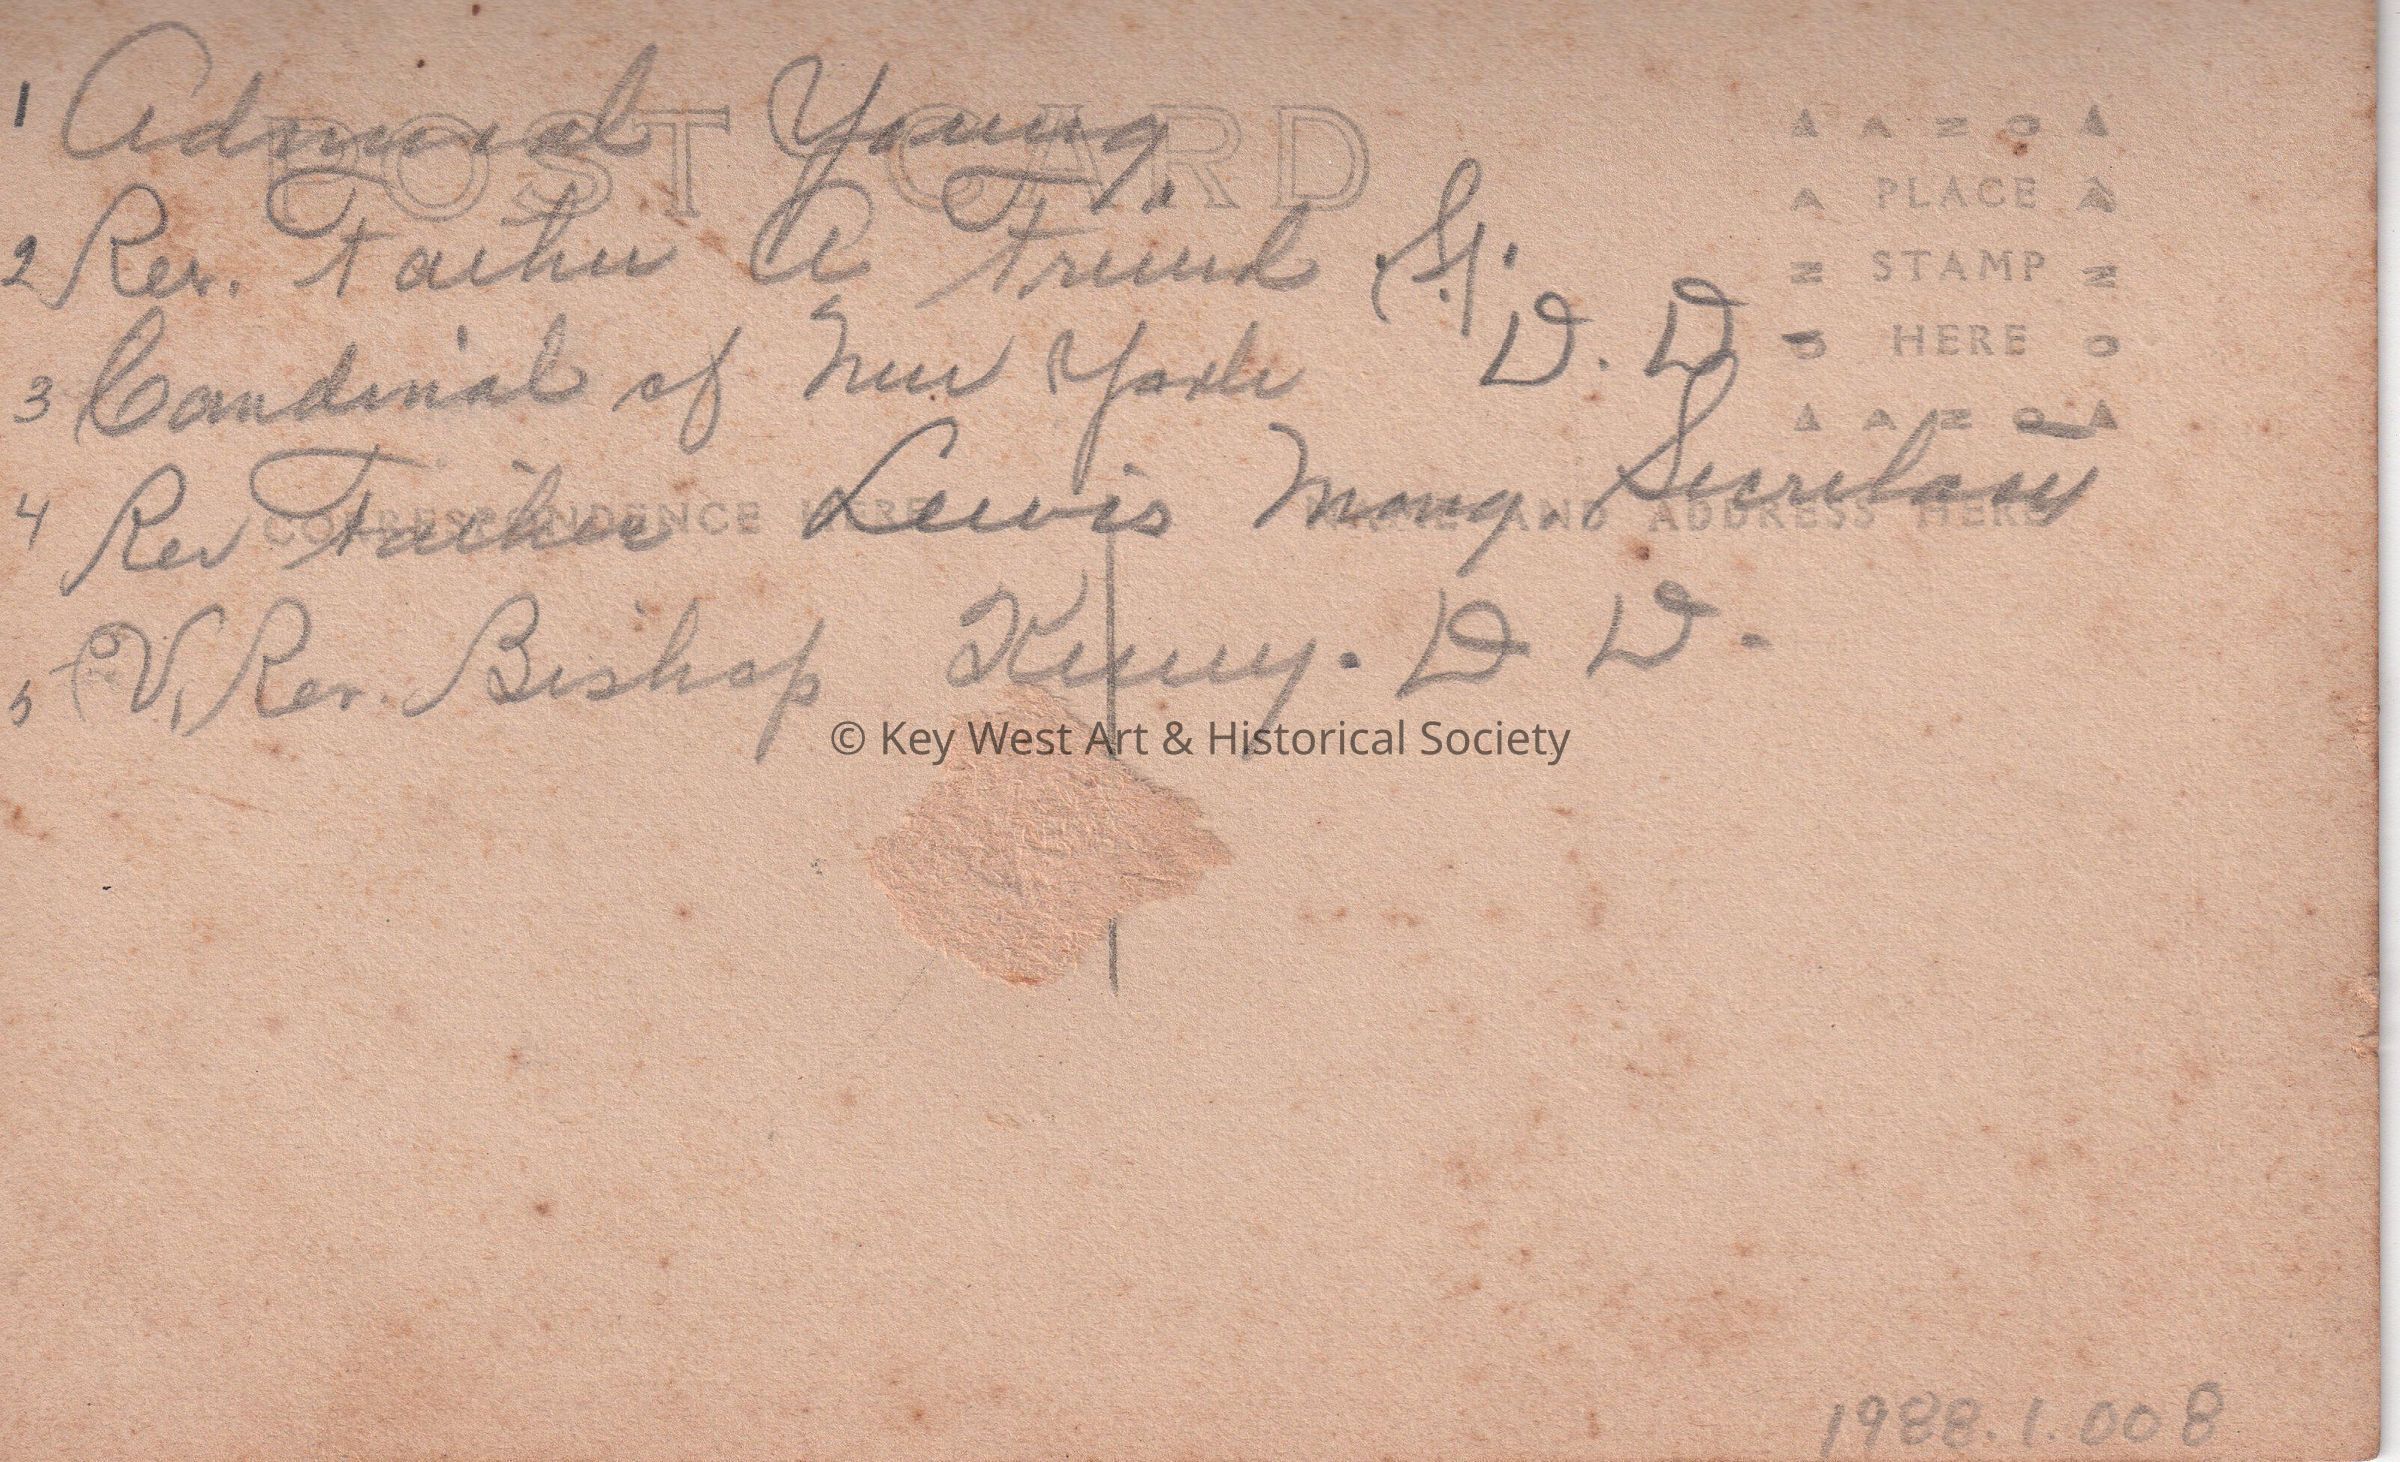 1 Admiral Young
POST CARD
2 Rev. Father A Friend S.J.
3 Cardinal of New York D. D
4 Rev Father Lewis Mong. Secretary
CORRESPONDENCE HERE NAME AND ADDRESS HERE
5 V. Rev. Bishop Kenny. D D.
PLACE
STAMP
HERE
© Key West Art & Historical Society
1988.1.008